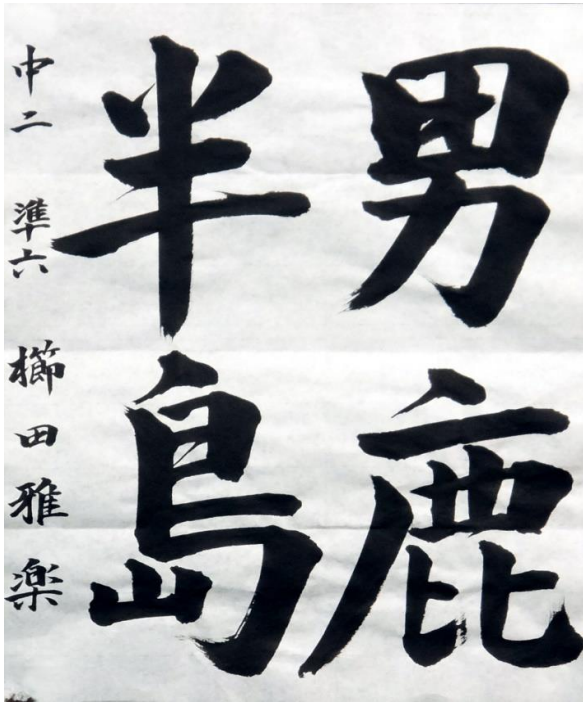 男鹿
半島
中二 準六 櫛田雅楽